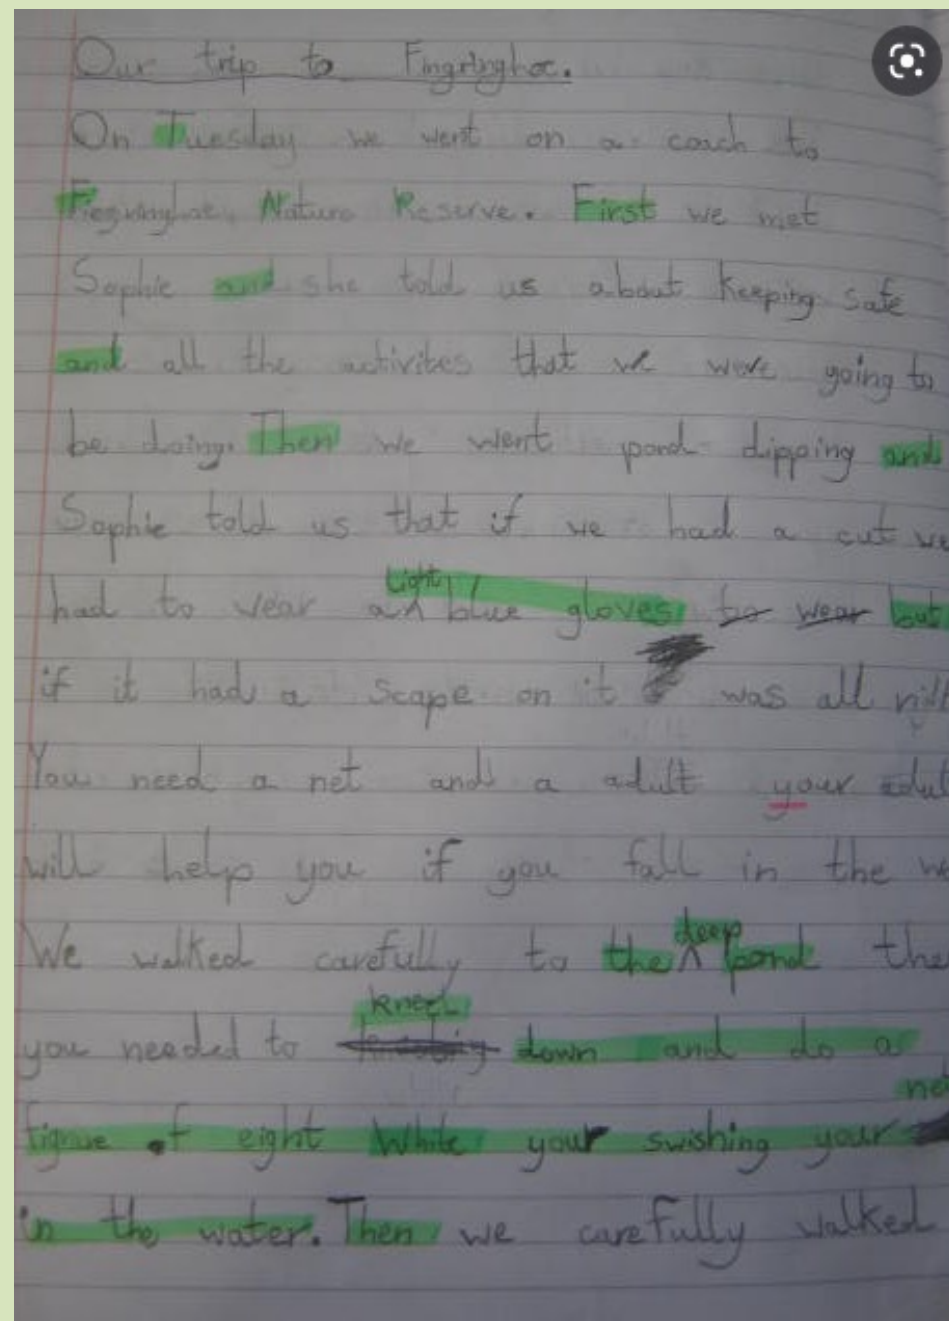 Our trip to Fingringhoe.
On Tuesday we went on a coach to
Nature Reserve. First we met
Sophie and she told us about keeping safe
and all the activites that we were going to
be doing. Then we went pond dipping and
Sophie told us that if we had a cut we
had to wear a light blue gloves to wear but
if it had a scape on it was all
You need a net and a adult your
will help you if you fall in the
We walked carefully to the deep pond
you needed to kneel down and do a
figrue of eight while your swishing your net
in the water. Then we carefully walked